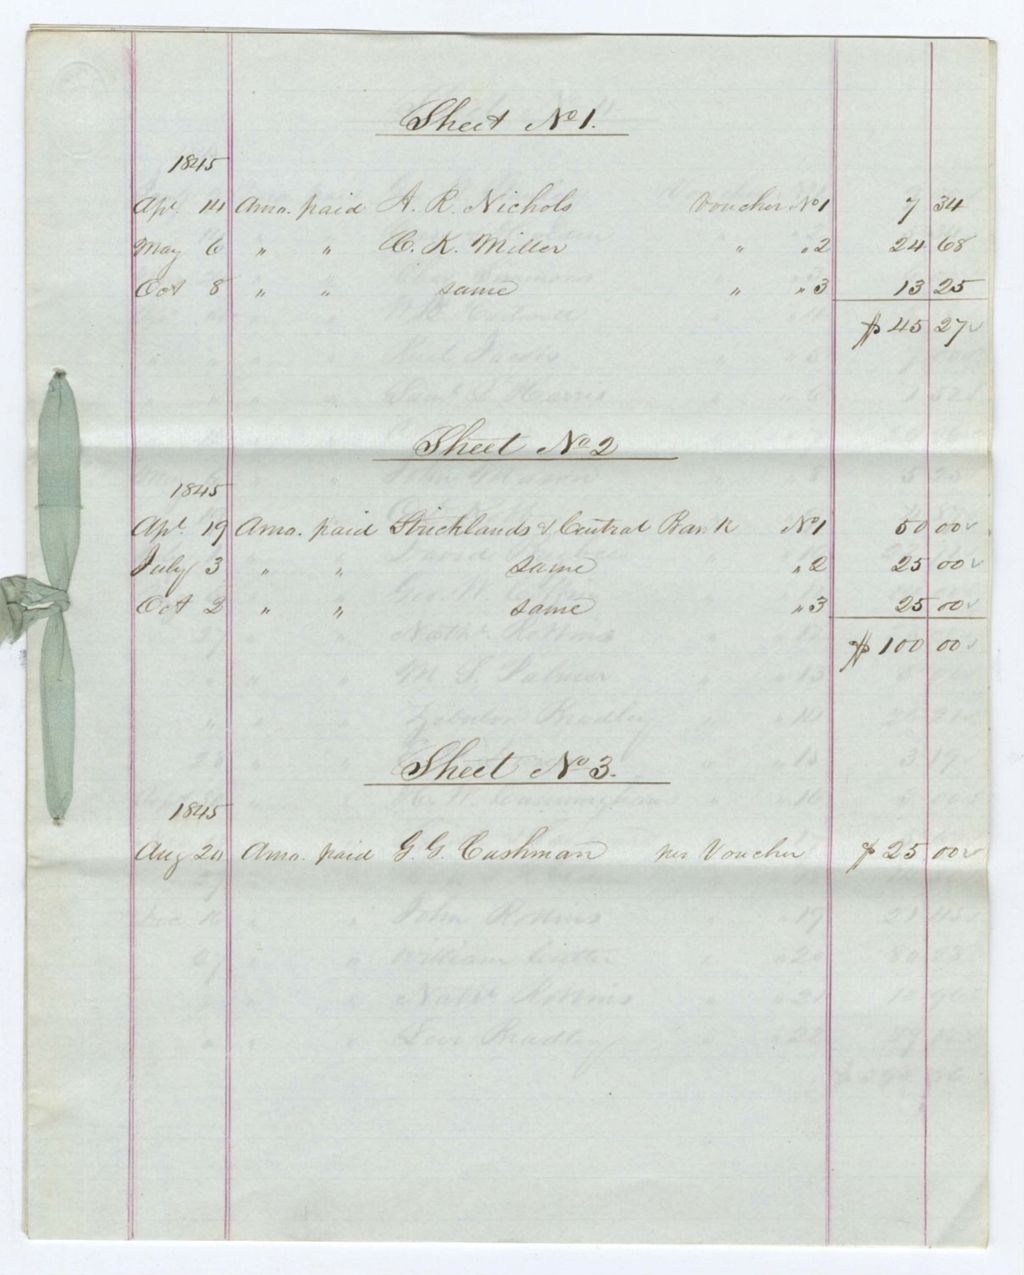 Sheet No 1.
1845
Apl. 14 Amo. paid A. R. Nichols Voucher No 1 7 34
May 6 " " C. K. Miller " " 2 24 68
Oct 8 " " same " " 3 13 25
$ 45 27
Sheet No 2
1845
Apl. 19 Amo. paid Stricklands & Central Bank No 1 50 00
July 3 " " same " 2 25 00
Oct 2 " " same " 3 25 00
$ 100 00
Sheet No 3.
1845
Aug 20 Amo. paid G. G. Cushman per Voucher $ 25 00